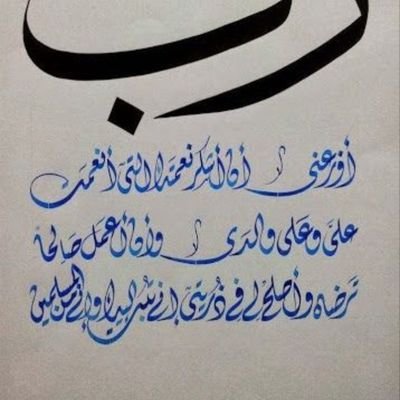 رب
أوزعني أن أشكر نعمتك التي أنعمت
علي وعلى والدي وأن أعمل صالحا
ترضاه وأصلح لي في ذريتي إني تبت إليك وإني من المسلمين